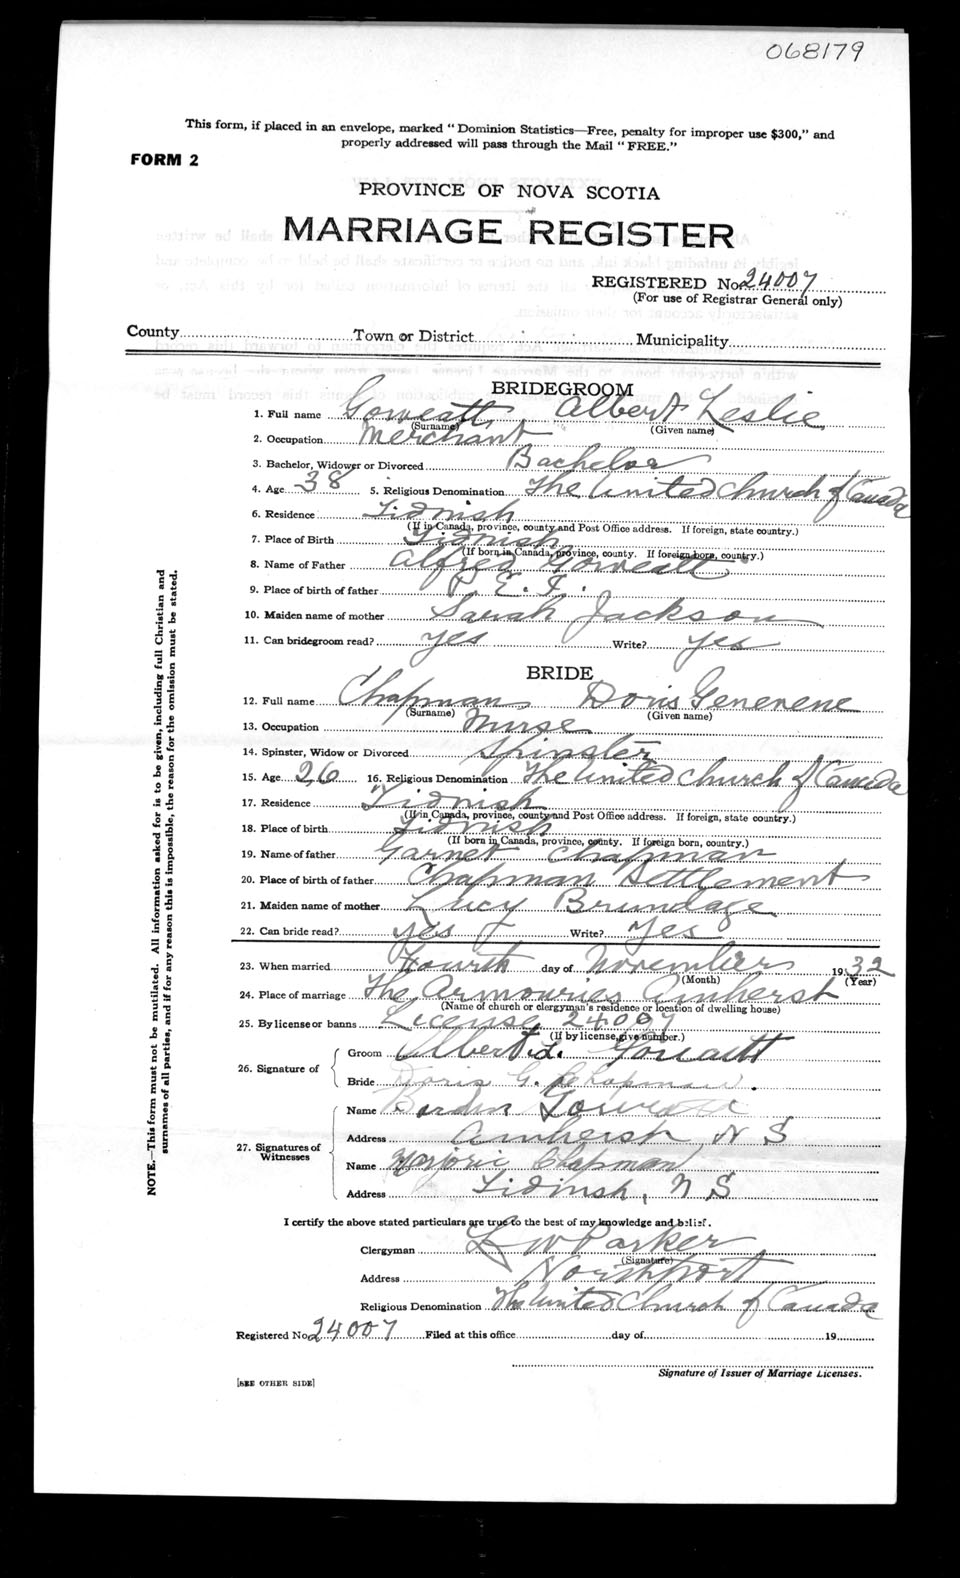 068179
This form, if placed in an envelope, marked "Dominion Statistics—Free, penalty for improper use $300," and
properly addressed will pass through the Mail "FREE."
FORM 2
PROVINCE OF NOVA SCOTIA
MARRIAGE REGISTER
REGISTERED No. 24007
(For use of Registrar General only)
County Town or District Municipality
BRIDEGROOM
1. Full name Goweatt, Albert Leslie
(Surname) (Given name)
2. Occupation Merchant
3. Bachelor, Widower or Divorced Bachelor
4. Age 38 5. Religious Denomination The United Church of Canada
6. Residence Tidnish
(If in Canada, province, county and Post Office address. If foreign, state country.)
7. Place of Birth Tidnish
(If born in Canada, province, county. If foreign born, country.)
8. Name of Father Alfred Goweatt
9. Place of birth of father P. E. I.
10. Maiden name of mother Sarah Jackson
11. Can bridegroom read? yes Write? yes
BRIDE
12. Full name Chapman Doris Generene
(Surname) (Given name)
13. Occupation Nurse
14. Spinster, Widow or Divorced Spinster
15. Age 26 16. Religious Denomination The United Church of Canada
17. Residence Tidnish
(If in Canada, province, county and Post Office address. If foreign, state country.)
18. Place of birth Tidnish
(If born in Canada, province, county. If foreign born, country.)
19. Name of father Garnet Chapman
20. Place of birth of father Chapman Settlement
21. Maiden name of mother Lucy Brundage
22. Can bride read? yes Write? Yes
23. When married Fourth day of November 1932
(Month) (Year)
24. Place of marriage The Armouries Amherst
(Name of church or clergyman's residence or location of dwelling house)
25. By license or banns License 24007
(If by license, give number.)
26. Signature of
Groom Albert L. Gowatt
Bride Doris G. Chapman.
27. Signatures of Witnesses
Name Borden
Address Amherst, N S
Name Marjorie Chapman
Address Tidinsh, N S
I certify the above stated particulars are true to the best of my knowledge and belief.
Clergyman L W Parker
(Signature)
Address Northport
Religious Denomination The United Church of Canada
Registered No. 24007 Filed at this office day of 19
Signature of Issuer of Marriage Licenses.
[SEE OTHER SIDE]
NOTE.—This form must not be mutilated. All information asked for is to be given, including full Christian and
surnames of all parties, and if for any reason this is impossible, the reason for the omission must be stated.